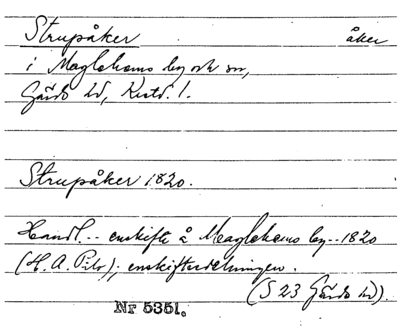 Strupåker åker
i Maglehems by och sn,
Gärds hd, Krist. l.
Strupåker 1820.
Handl... enskifte å Maglehems by... 1820
(H. A. Pihl); enskiftesdelningen.
(S 23 Gärds hd).
Nr 5351.